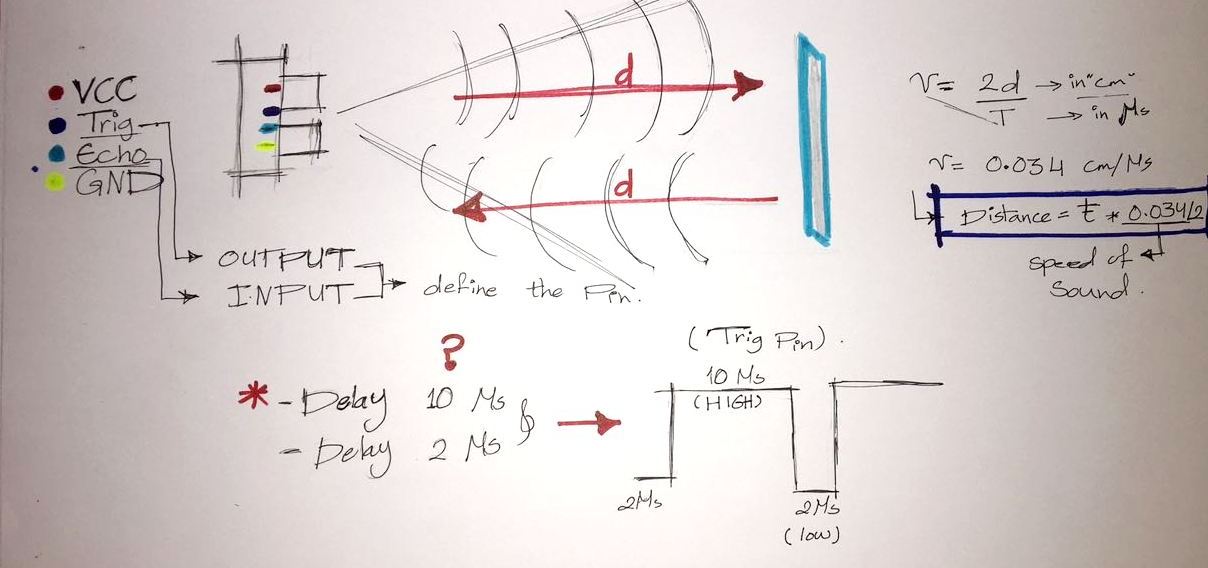 VCC
Trig
Echo
GND
OUTPUT
INPUT
define the Pin.
d
d
V = 2d → in "cm"
T → in Ms
V = 0.034 cm/Ms
Distance = t * 0.034/2
speed of
Sound.
?
* - Delay 10 Ms
- Delay 2 Ms
(Trig Pin).
10 Ms
(HIGH)
2Ms
2Ms
(low)